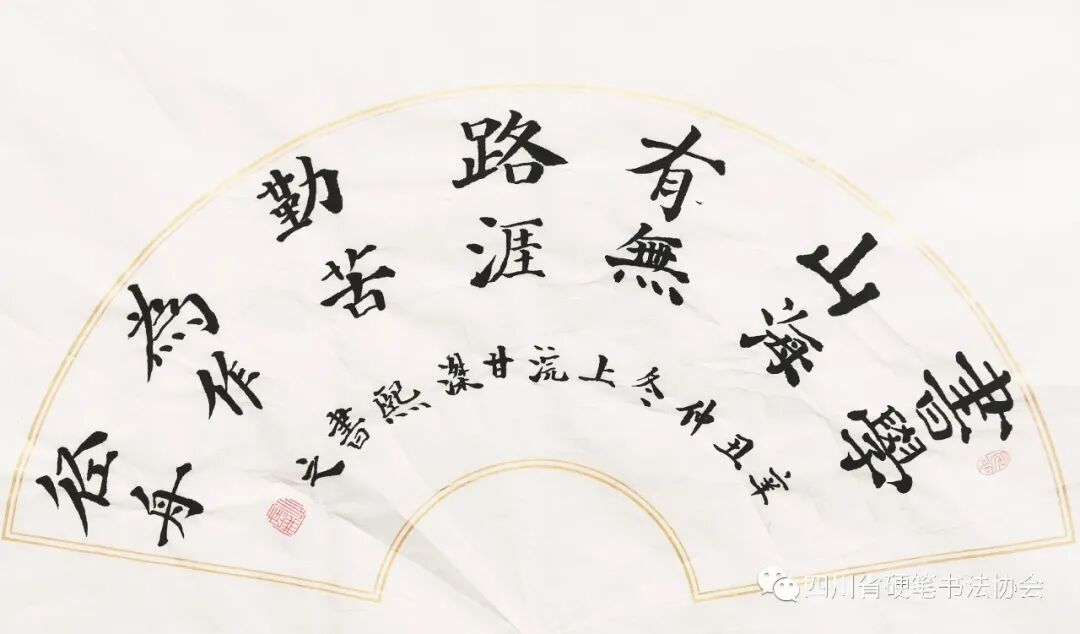 書山有路勤為徑
學海無涯苦作舟
辛丑仲冬上浣甘熙書之
四川省硬笔书法协会